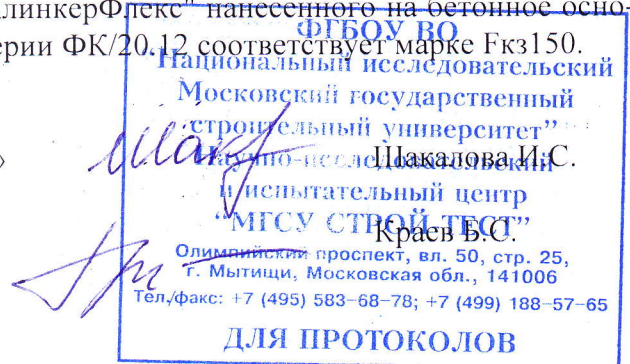 алинкерФлекс" нанесенного на бетонное осно-
ерии ФК/20.12 соответствует марке Fкз150.
ФГБОУ ВО
"Национальный исследовательский
Московский государственный
строительный университет"
Научно-исследовательский
и испытательный центр
"МГСУ СТРОЙ-ТЕСТ"
Олимпийский проспект, вл. 50, стр. 25,
г. Мытищи, Московская обл., 141006
Тел./факс: +7 (495) 583-68-78; +7 (499) 188-57-65
ДЛЯ ПРОТОКОЛОВ
»
Шакалова И.С.
Краев Б.С.